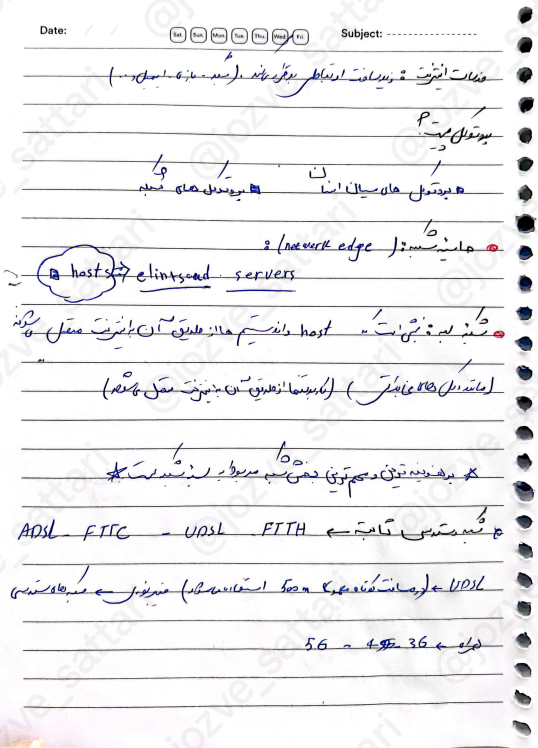 Date: / / Sat. Sun. Mon. Tue. Thu. Wed. Fri. Subject:
خدمات اینترنت : زیرساخت ارتباطی برقرار می‌کند. (شبکه - بازی - ایمیل و ...)
پروتوکل چیست؟
پروتوکل های میان انسان پروتوکل های شبکه
حاشیه شبکه : (network edge) :
hosts => clintsand servers
شبکه لبه : بخشی است که host و سیستم ها از طریق آن به اینترنت متصل می‌شوند
(مانند وای های خانگی) (کاربر تنها از طریق آن به اینترنت متصل می‌شود)
* پرهزینه ترین و مهم ترین بخش شبکه مربوط به لبه شبکه است *
شبکه دسترسی ثابت ← ADSL - FTTC - VDSL . FTTH
VDSL ← (در مسافت کوتاه 500m استفاده می‌شود) ← شبکه های دسترسی
همراه ← 3G - 4G - 5G
@jozve_sattari